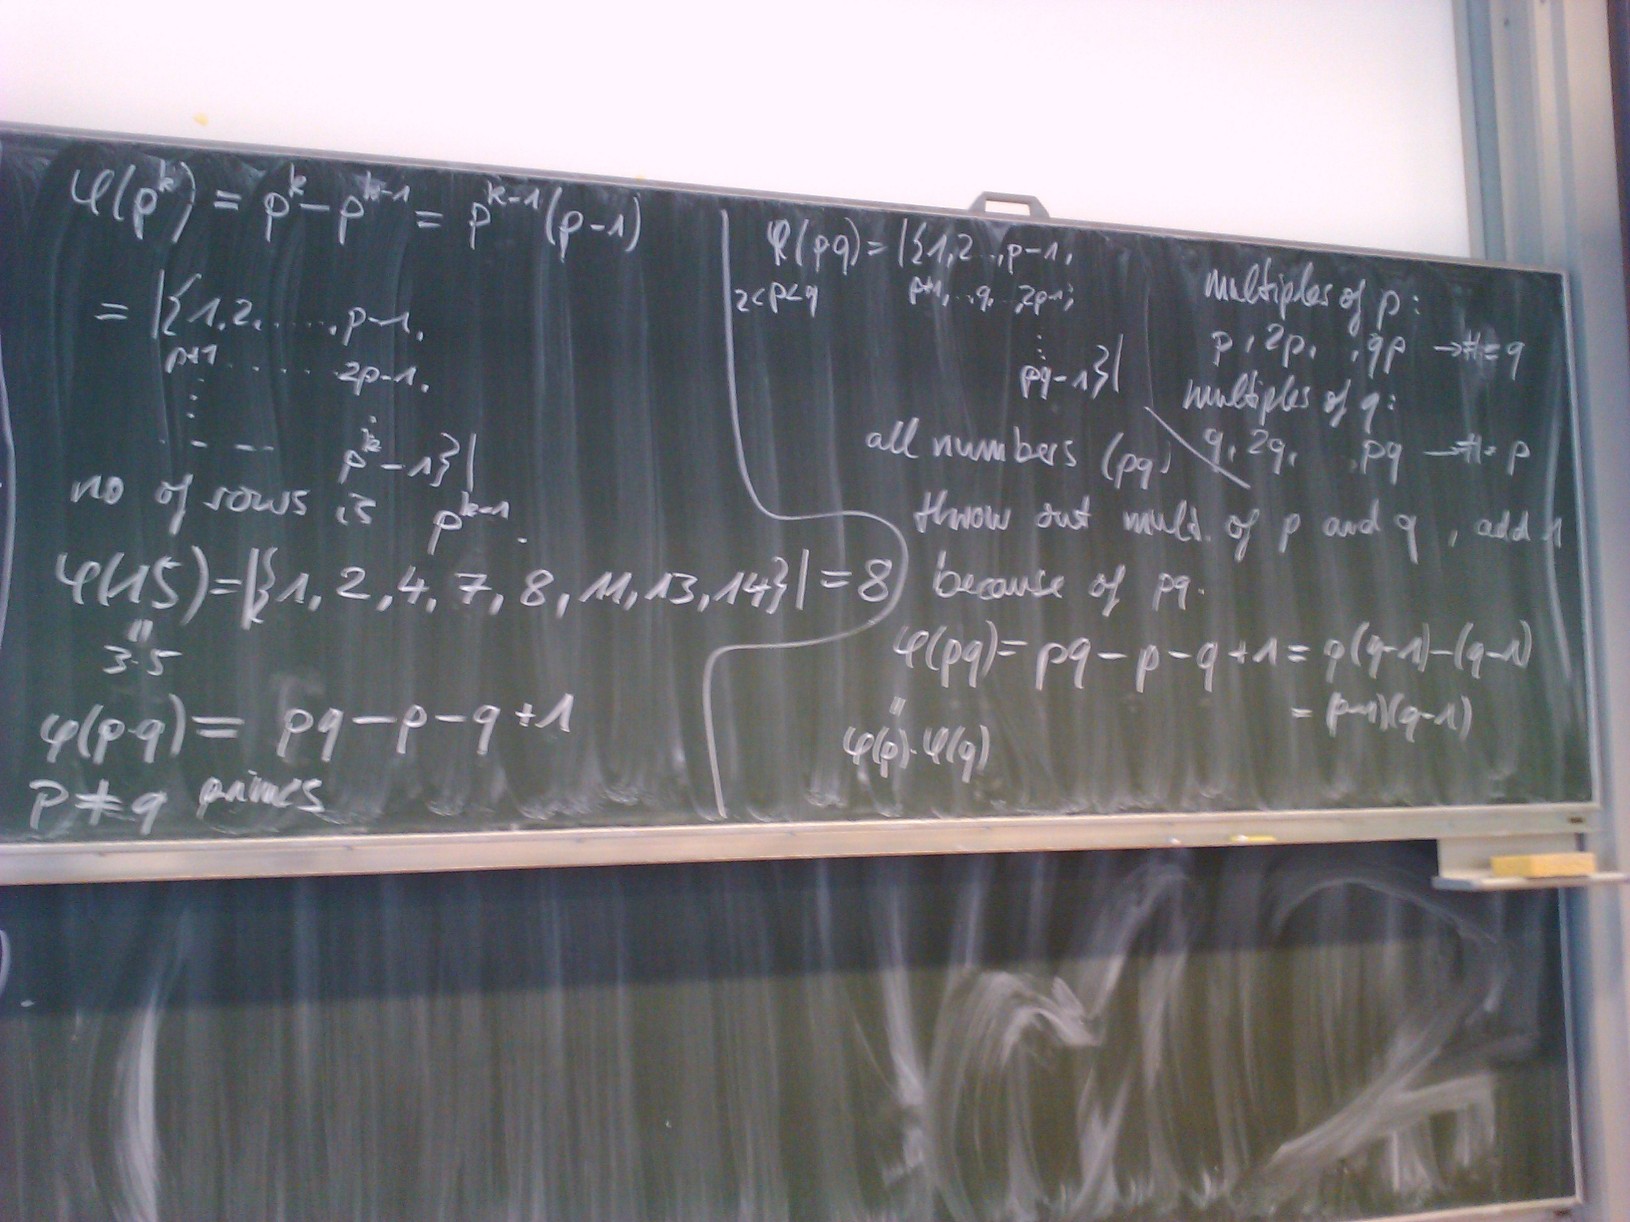 φ(p^k) = p^k - p^{k-1} = p^{k-1}(p-1)
= |{1,2,.....,p-1,
p+1 ...... 2p-1,
⋮ ⋮
- - -- p^k-1}|
no of rows is p^{k-1}.
φ(15)=|{1, 2, 4, 7, 8, 11, 13, 14}| = 8
"
3·5
φ(p·q) = pq-p-q+1
p≠q primes
φ(pq)=|{1,2..,p-1,
2<p<q p+1,..q, ..,2p-1,
⋮
pq-1}|
multiples of p:
p, 2p, ,qp →#=q
multiples of q:
q, 2q, ,pq →#=p
all numbers (pq)
throw out mult. of p and q, add 1
because of pq.
φ(pq)= pq-p-q+1 = p(q-1)-(q-1)
= (p-1)(q-1)
"
φ(p)·φ(q)